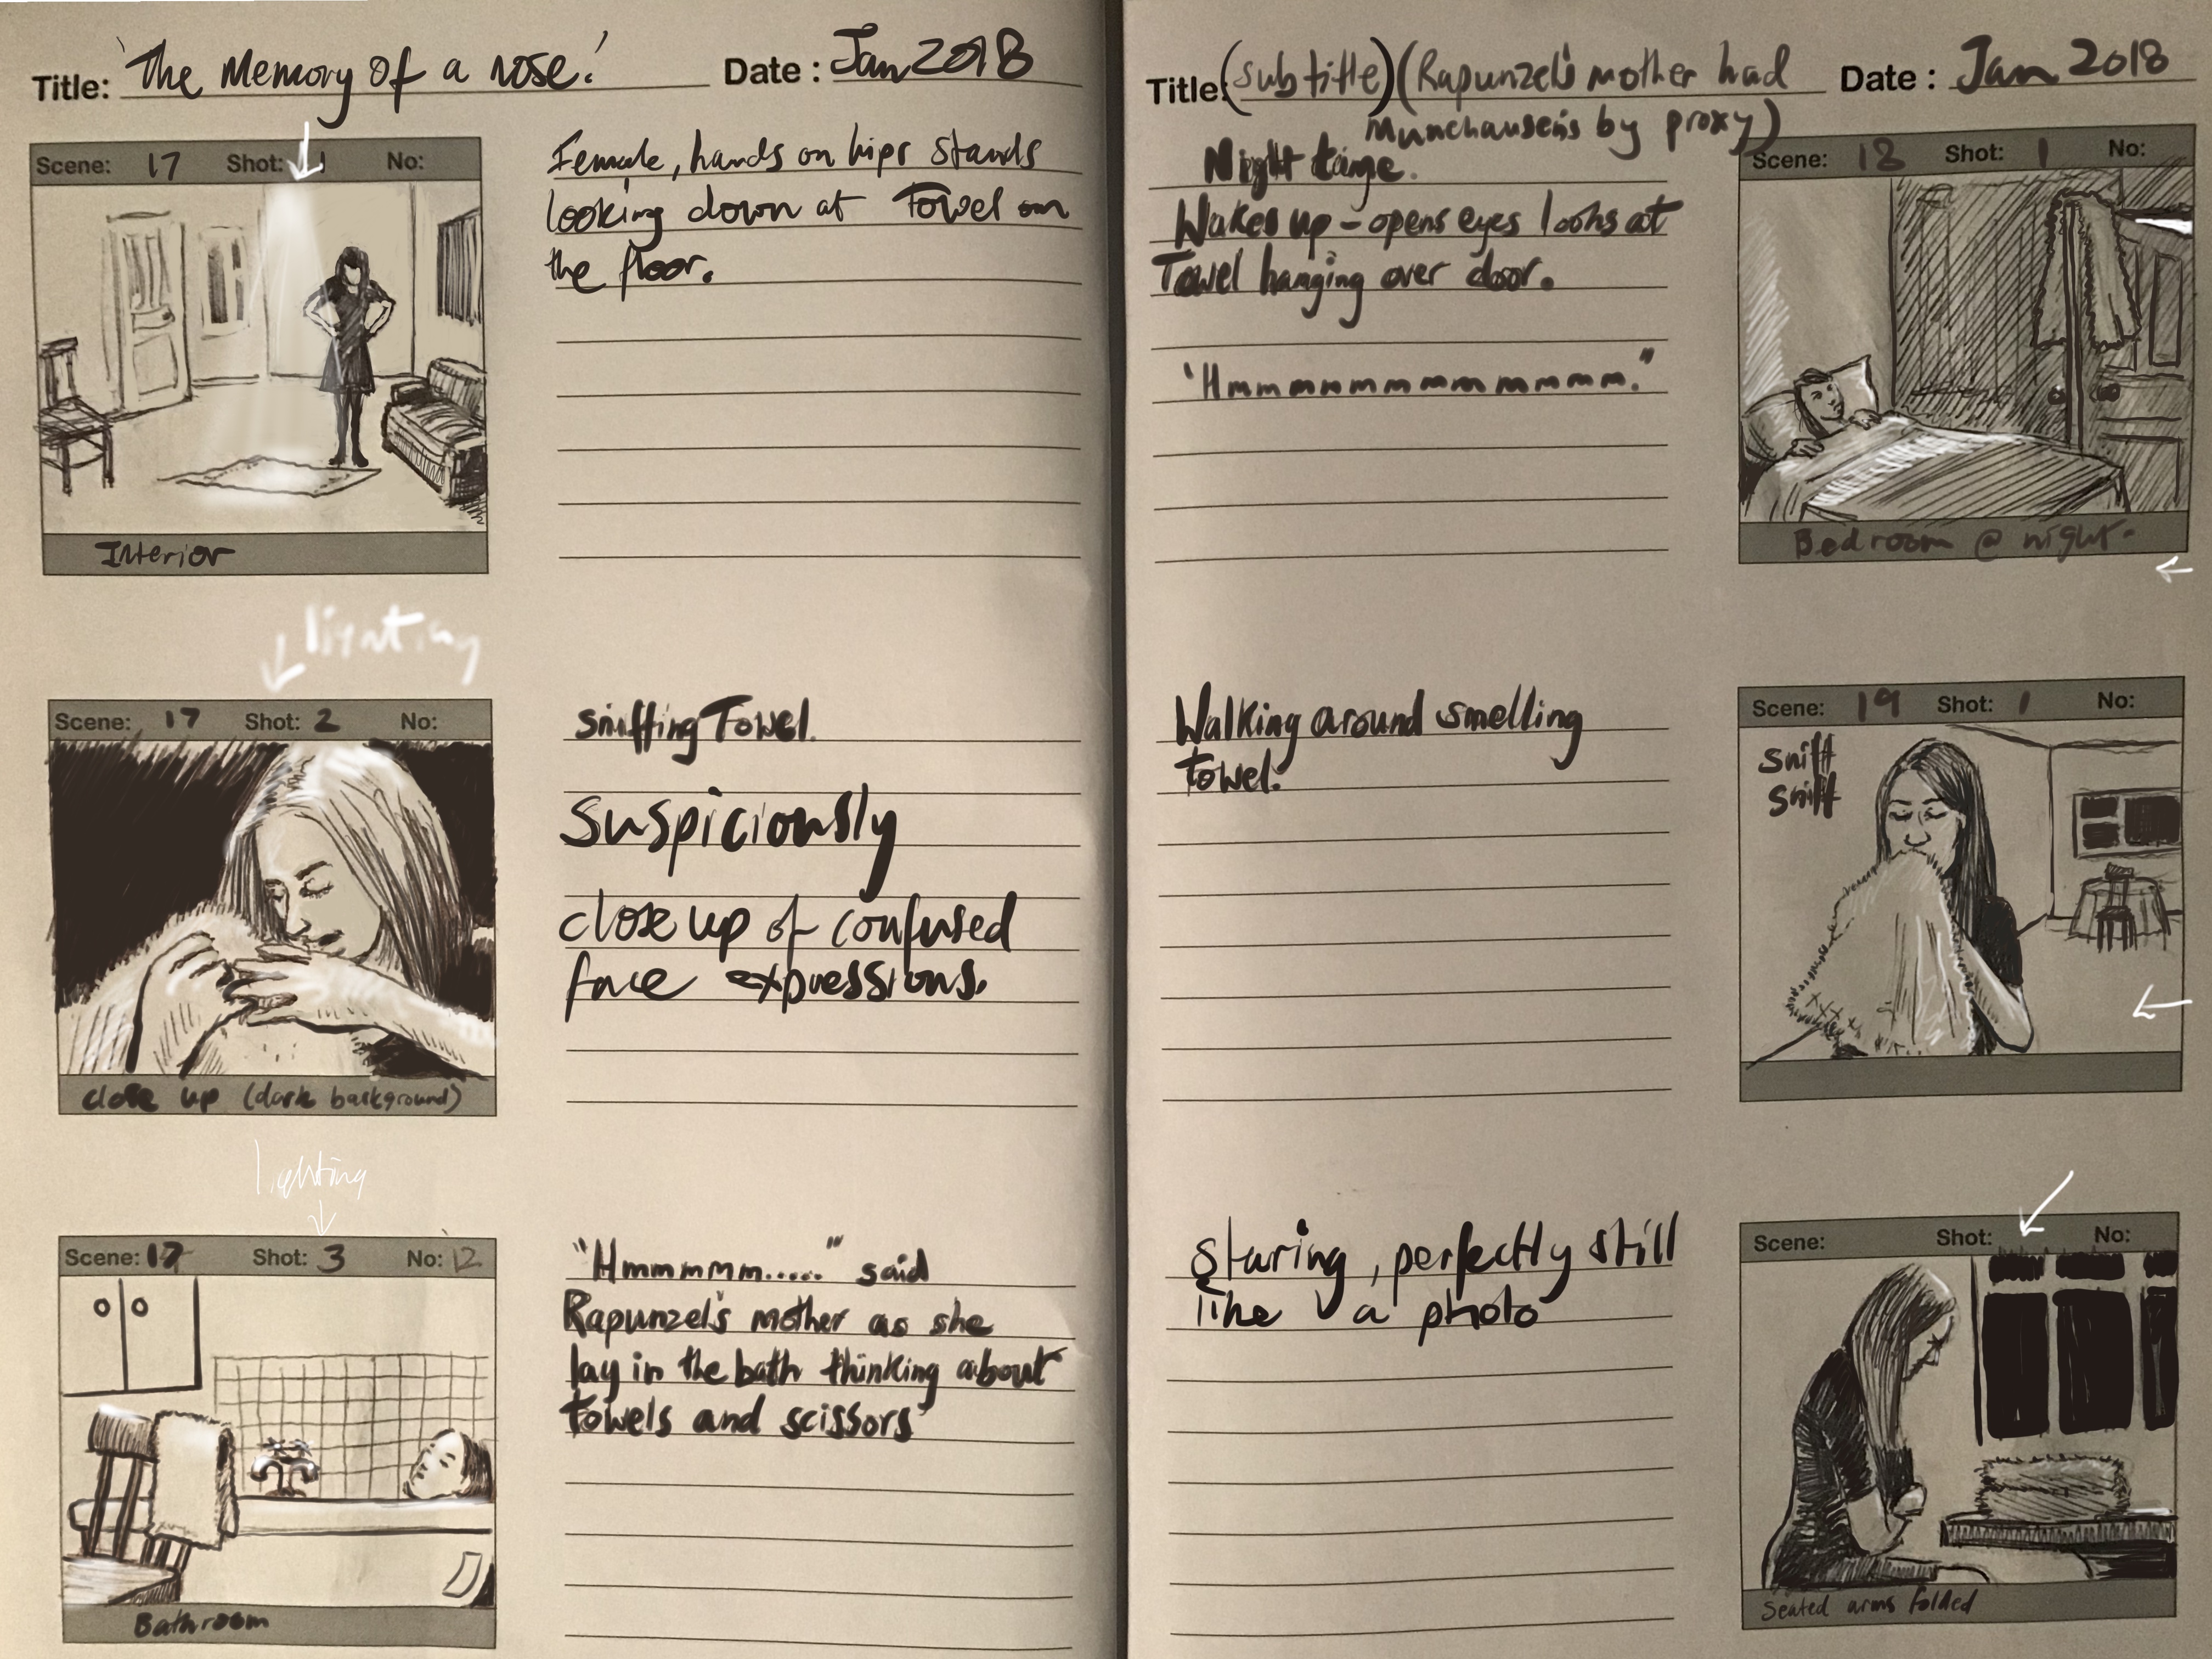 Title: 'The Memory Of a rose.' Date: Jan 2018
Scene: 17 Shot: No:
Female, hands on hips stands
looking down at Towel on
the floor.
Interior
lighting
Scene: 17 Shot: 2 No:
Sniffing Towel.
Suspiciously
close up of confused
face expressions.
close up (dark background)
lighting
Scene: 17 Shot: 3 No: 12
"Hmmmmm....." said
Rapunzel's mother as she
lay in the bath thinking about
towels and scissors
Bathroom
Title: (subtitle) (Rapunzel's mother had Date: Jan 2018
Munchausen's by proxy)
Night time.
Scene: 18 Shot: 1 No:
Wakes up - opens eyes looks at
Towel hanging over door.
"Hmmmmmmmmmmmm."
Bedroom @ night.
Scene: 19 Shot: 1 No:
Walking around smelling
towel.
Sniff
Sniff
Scene: Shot: No:
Staring, perfectly still
like a photo
Seated arms folded